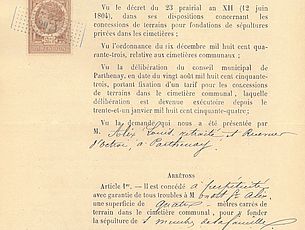 Vu le décret du 23 prairial an XII (12 juin
1804), dans ses dispositions concernant les
concessions de terrains pour fondations de sépultures
privées dans les cimetières ;
Vu l'ordonnance du six décembre mil huit cent qua-
rante-trois, relative aux cimetières communaux ;
Vu la délibération du conseil municipal de
Parthenay, en date du vingt août mil huit cent cinquante-
trois, portant fixation d'un tarif pour les concessions
de terrains dans le cimetière communal, laquelle
délibération est devenue exécutoire depuis le
trente-et-un janvier mil huit cent cinquante-quatre ;
Vu la demande qui nous a été présentée par
M. Alix Louis, retraité et Receveur
d'octroi, à Parthenay
ARRÊTONS
Article 1er. — Il est concédé à perpétuité
avec garantie de tous troubles à M.
une superficie de quatre mètres carrés de
terrain dans le cimetière communal, pour y fonder
la sépulture de membres de la famille